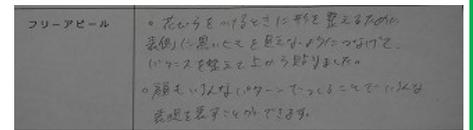 フリーアピール
。花びらをつけるときに形を整えるために、
裏側に黒いヒモを見えないようにつなげて、
バランスを整えて上から貼りました。
。顔もいろんなパターンでつくることでいろんな
表現を表すことができます。